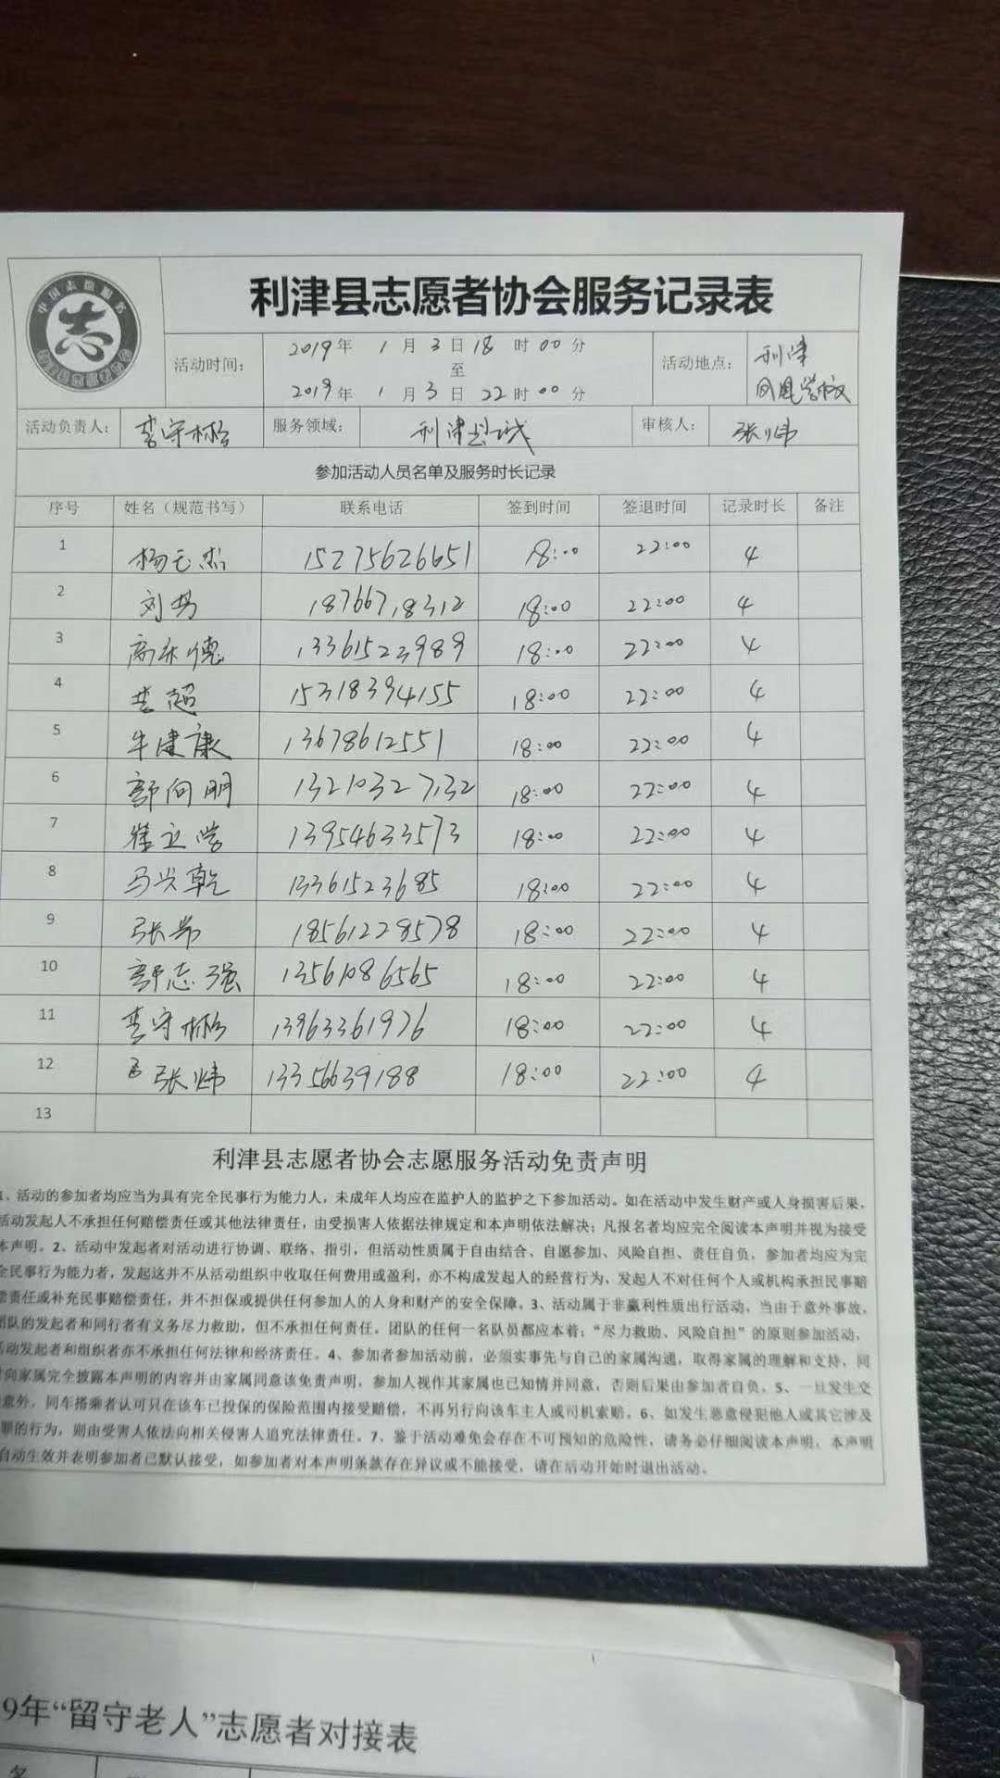 中国志愿服务
志
利津县志愿者协会服务记录表
活动时间： 2019年 1 月 3 日 18 时 00 分
至
2019年 1 月 3 日 22 时 00 分
活动地点： 利津
凤凰学校
活动负责人： 李守林 服务领域： 利津县城 审核人： 张炜
参加活动人员名单及服务时长记录
序号 姓名（规范书写） 联系电话 签到时间 签退时间 记录时长 备注
1 杨云杰 15275626651 18:00 22:00 4
2 刘 18766718312 18:00 22:00 4
3 高永德 13361523989 18:00 22:00 4
4 李超 15318394155 18:00 22:00 4
5 牛建康 13678612551 18:00 22:00 4
6 郭向明 13210327132 18:00 22:00 4
7 13954633573 18:00 22:00 4
8 马兴乾 13361523685 18:00 22:00 4
9 张 18561228578 18:00 22:00 4
10 郭志强 13561086565 18:00 22:00 4
11 李守林 13963361976 18:00 22:00 4
12 张炜 13356639188 18:00 22:00 4
13
利津县志愿者协会志愿服务活动免责声明
1、活动的参加者均应当为具有完全民事行为能力人，未成年人均应在监护人的监护之下参加活动。如在活动中发生财产或人身损害后果，
活动发起人不承担任何赔偿责任或其他法律责任，由受损害人依据法律规定和本声明依法解决；凡报名者均应完全阅读本声明并视为接受
本声明。2、活动中发起者对活动进行协调、联络、指引，但活动性质属于自由结合、自愿参加、风险自担、责任自负，参加者均应为完
全民事行为能力者，发起这并不从活动组织中收取任何费用或盈利，亦不构成发起人的经营行为，发起人不对任何个人或机构承担民事赔
偿责任或补充民事赔偿责任，并不担保或提供任何参加人的人身和财产的安全保障。3、活动属于非赢利性质出行活动，当由于意外事故，
团队的发起者和同行者有义务尽力救助，但不承担任何责任。团队的任何一名队员都应本着：“尽力救助、风险自担”的原则参加活动，
活动发起者和组织者亦不承担任何法律和经济责任。4、参加者参加活动前，必须实事先与自己的家属沟通，取得家属的理解和支持，同
时向家属完全披露本声明的内容并由家属同意该免责声明，参加人视作其家属也已知情并同意，否则后果由参加者自负。5、一旦发生交
意外，同车搭乘者认可只在该车已投保的保险范围内接受赔偿，不再另行向该车主人或司机索赔。6、如发生恶意侵犯他人或其它涉及
罪的行为，则由受害人依法向相关侵害人追究法律责任。7、鉴于活动难免会存在不可预知的危险性，请务必仔细阅读本声明，本声明
自动生效并表明参加者已默认接受，如参加者对本声明条款存在异议或不能接受，请在活动开始时退出活动。
9年“留守老人”志愿者对接表
名